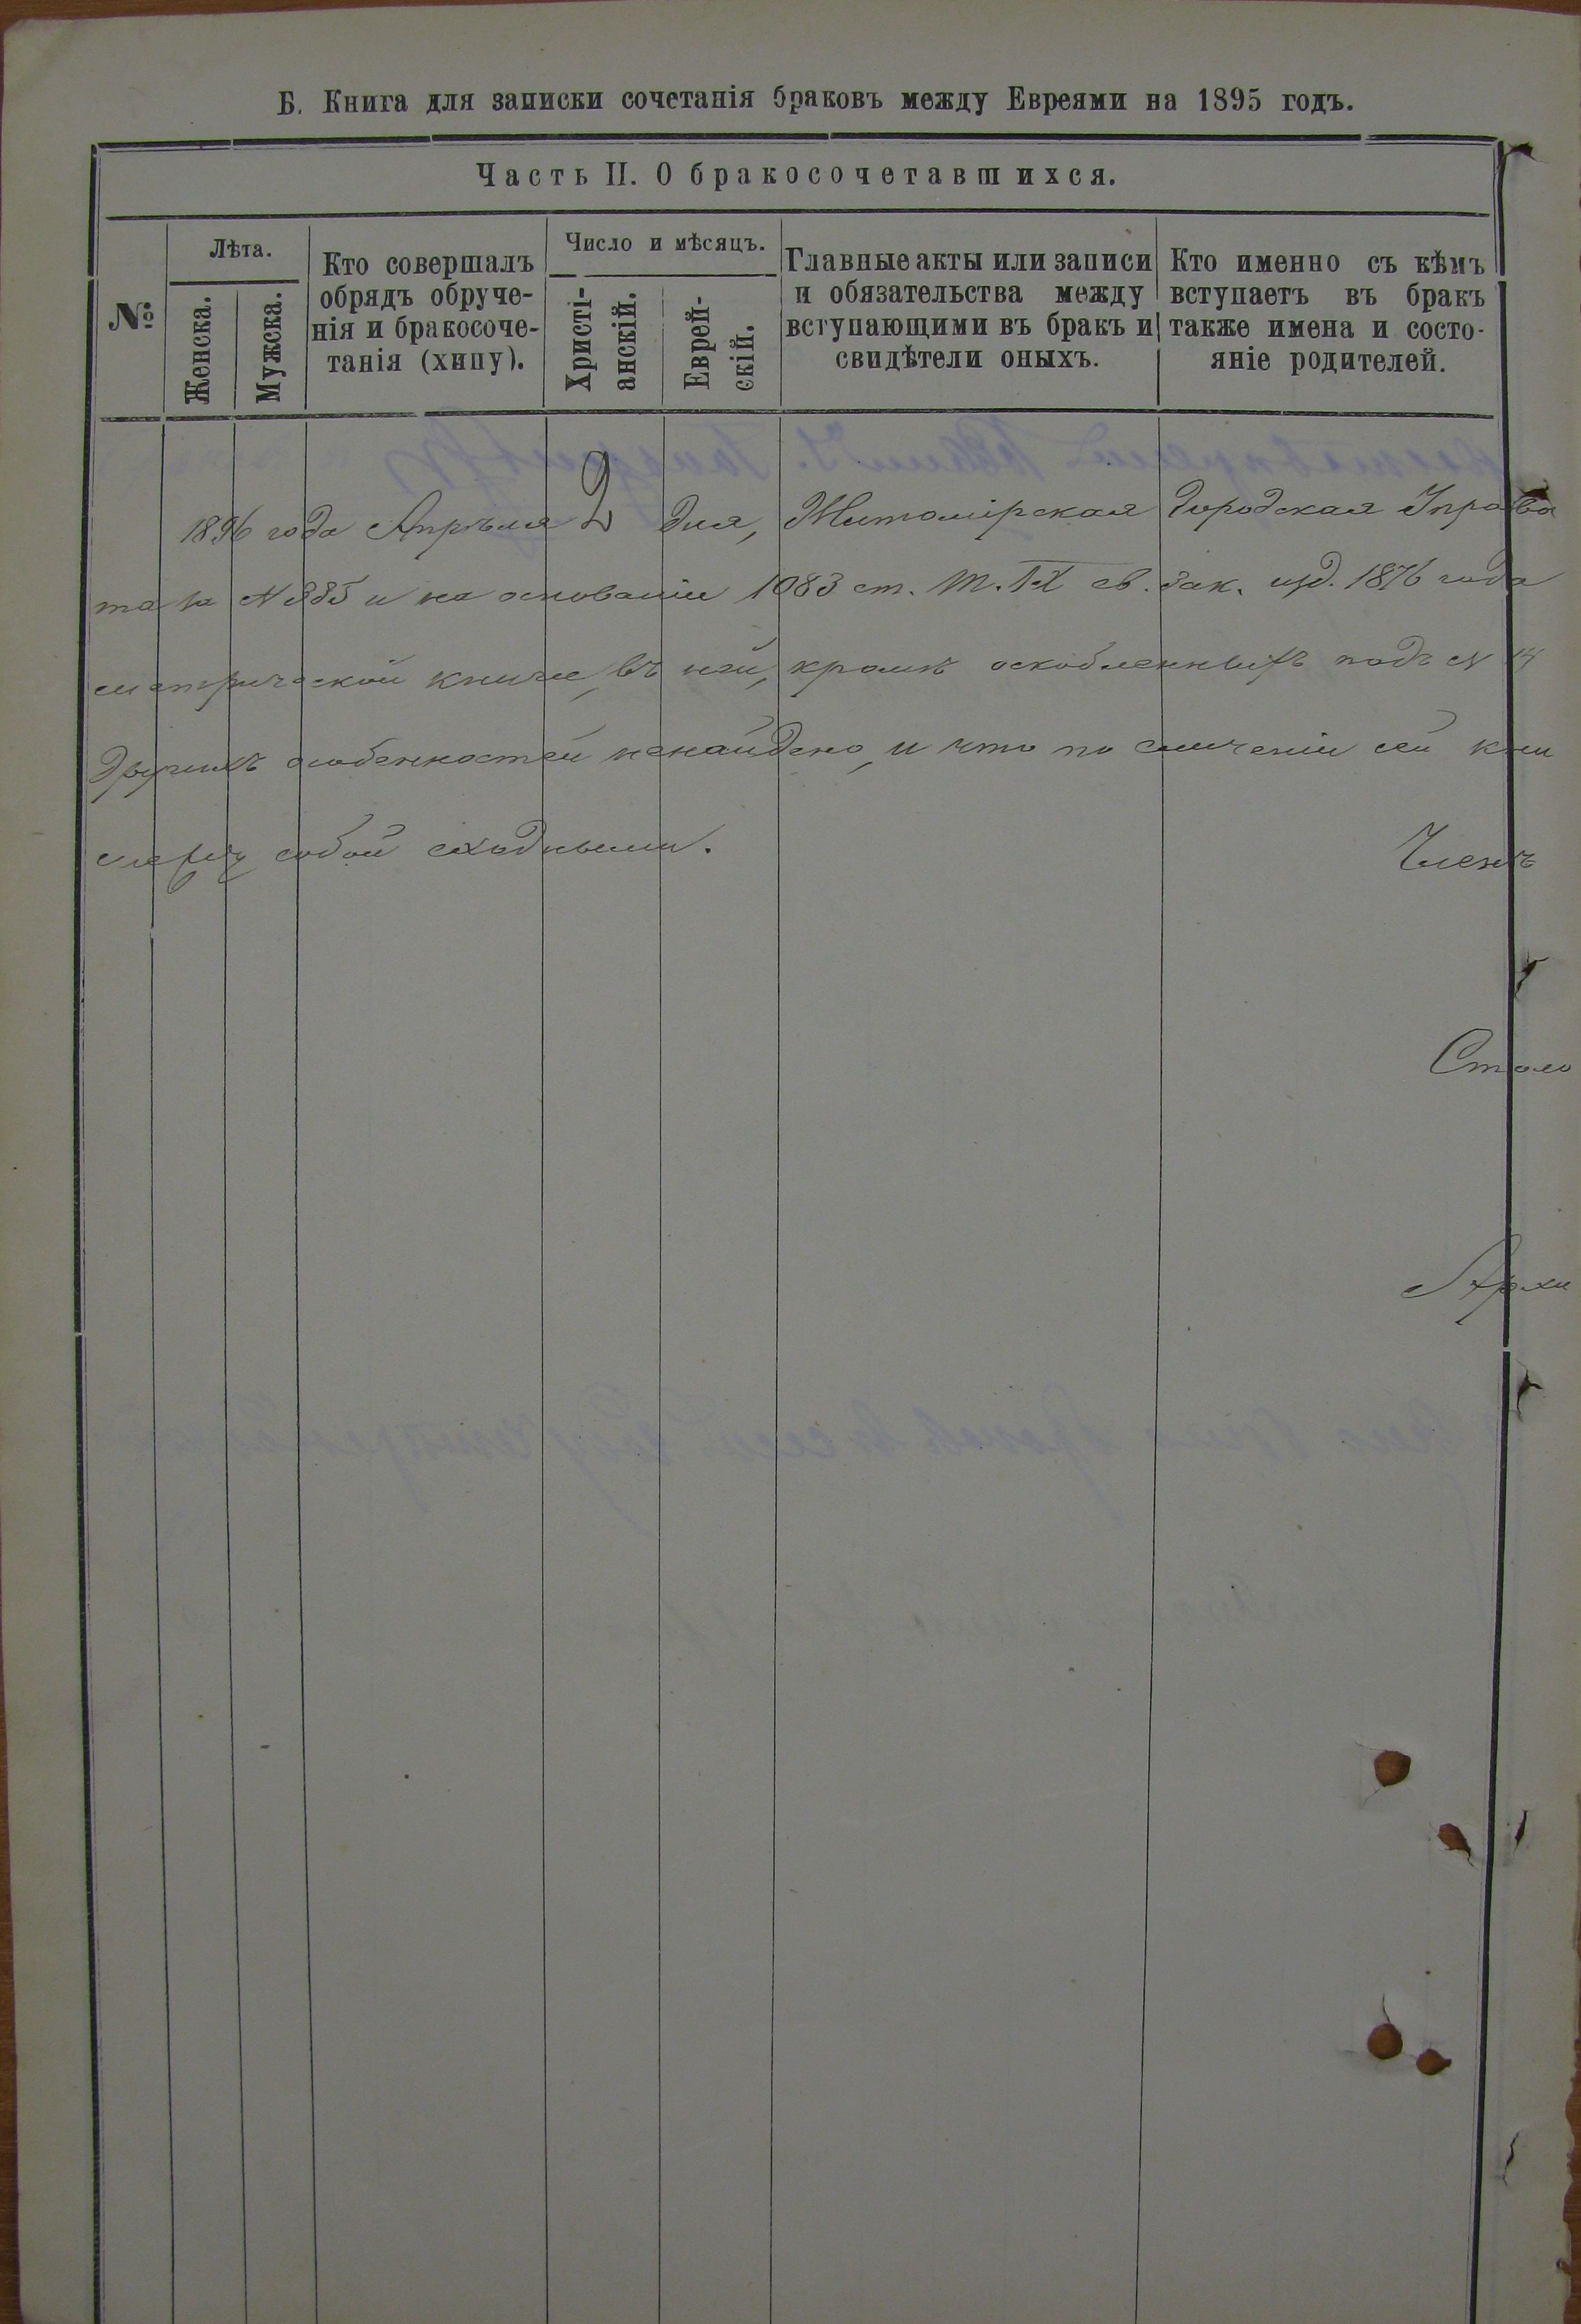 Б. Книга для записки сочетанія браковъ между Евреями на 1895 годъ.
Часть II. О бракосочетавшихся.
№
Лѣта.
Женска.
Мужска.
Кто совершалъ
обрядъ обруче-
нія и бракосоче-
танія (хипу).
Число и мѣсяцъ.
Христі-
анскій.
Еврей-
скій.
Главные акты или записи
и обязательства между
вступающими въ бракъ и
свидѣтели оныхъ.
Кто именно съ кѣмъ
вступаетъ въ бракъ
также имена и состо-
яніе родителей.
1896 года Апрѣля 2 дня, Житомірская Городская Управа
та за № 885 и на основаніи 1083 ст. т. IX св. зак. изд. 1876 года
метрической книге, въ ней, кромѣ оскобленныхъ подъ № 14
другихъ особенностей ненайдено, и что по сличеніи сей кни
между собой сходными. Членъ
Столо
Архи